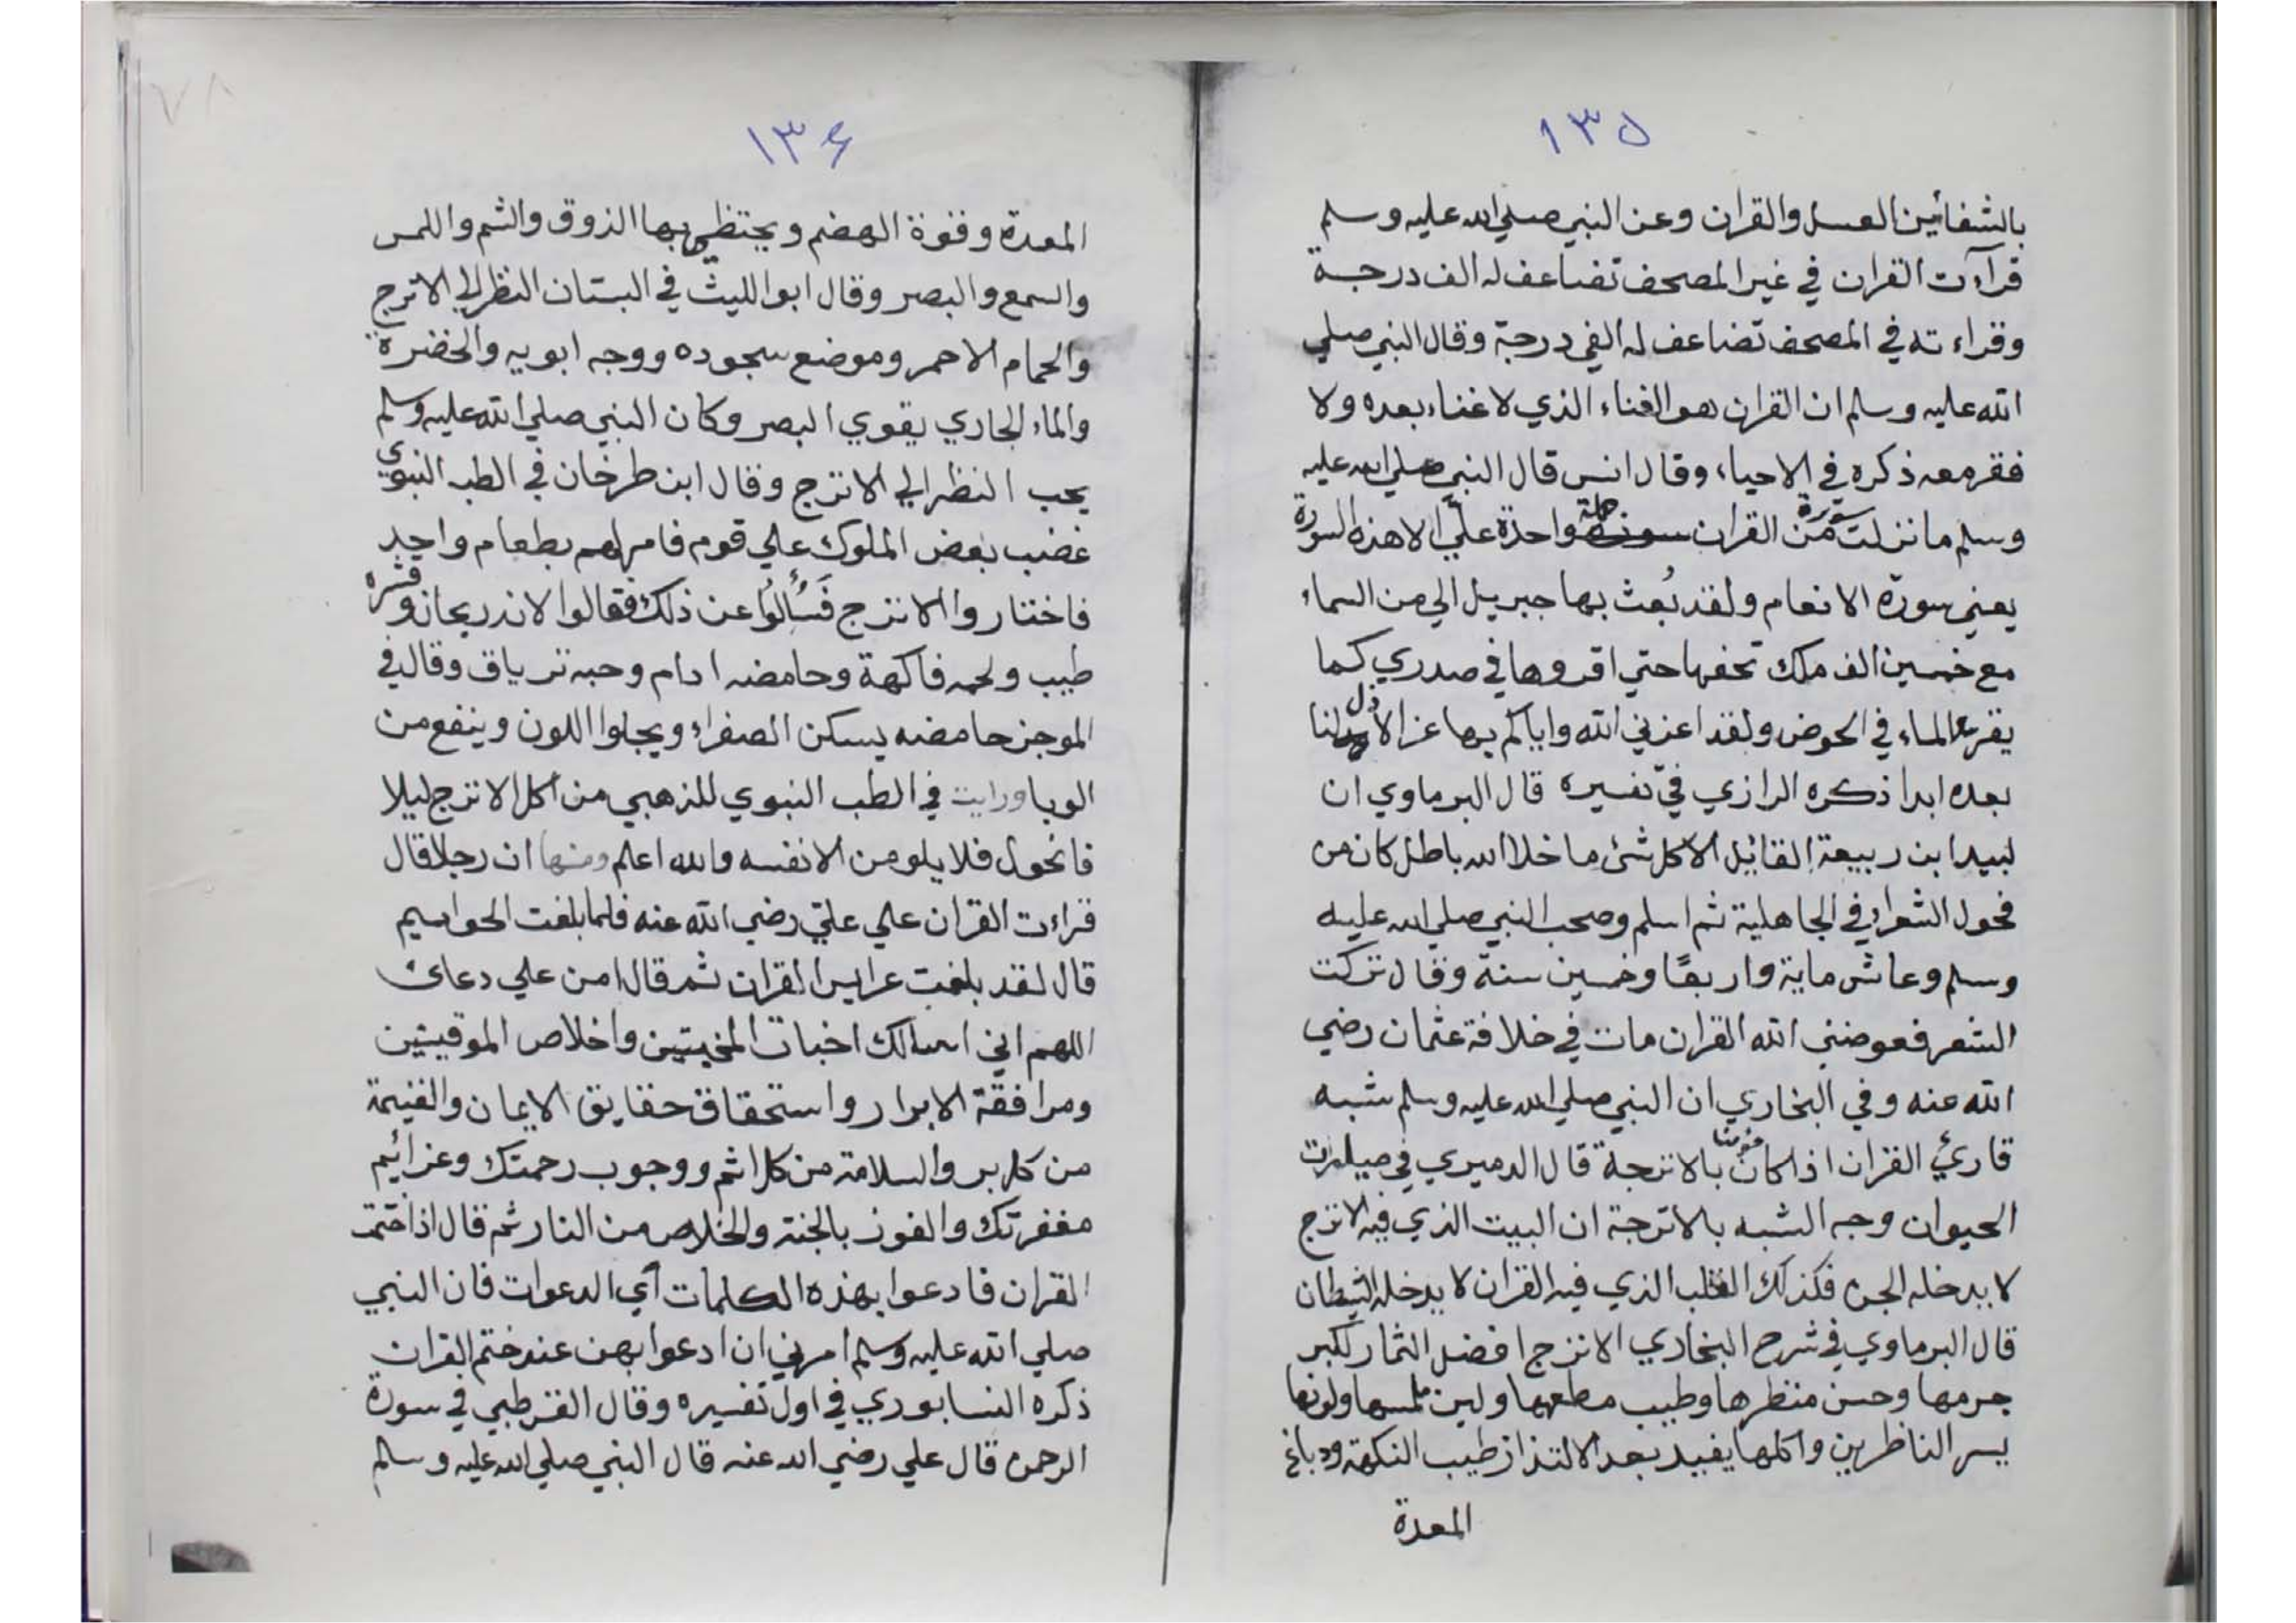 ١٣٥
بالشفائين العسل والقران وعن النبي صلي الله عليه وسلم
قرآءت القران في غير المصحف تضاعف له الف درجة
وقراءته في المصحف تضاعف له الفي درجة وقال النبي صلي
الله عليه وسلم ان القران هو الغناء الذي لا غناء بعده ولا
فقر معه ذكره في الاحياء وقال انس قال النبي صلي الله عليه
وسلم ما نزلت سورة من القران جملة واحدة علي الا هذه السورة
يعني سورة الانعام ولقد بُعث بها جبريل الي من السماء
مع خمسين الف ملك تحفها حتي اقروها في صدري كما
يقر الماء في الحوض ولقد اعزني الله واياكم بها عزا لا ذل لنا
بعده ابدا ذكره الرازي في تفسيره قال البرماوي ان
لبيد ابن ربيعة القائيل الا كل شئ ما خلا الله باطل كان من
فحول الشعراء في الجاهلية ثم اسلم وصحب النبي صلي الله عليه
وسلم وعاش ماية واربعًا وخمسين سنة وقال تركت
الشعر فعوضني الله القران مات في خلافة عثمان رضي
الله عنه وفي البخاري ان النبي صلي الله عليه وسلم شبه
قارئ القران اذا كان مؤمنا بالاترجة قال الدميري في
الحيوان وجه الشبه بالاترجة ان البيت الذي فيه الاترج
لا يدخله الجن فكذلك القلب الذي فيه القران لا يدخله الشيطان
قال البرماوي في شرح البخاري الاترج افضل الثمار لكبر
جرمها وحسن منظرها وطيب مطعمها ولين ملمسها ولونها
يسر الناظرين واكلها يفيد بعد الالتذاذ طيب النكهة ودباغ
المعدة
١٣۶
المعدة وقوة الهضم ويحتظي بها الذوق والشم واللمس
والسمع والبصر وقال ابو الليث في البستان النظر الي الاترج
والحمام الاحمر وموضع سجوده ووجه ابويه والخضرة
والماء الجاري يقوي البصر وكان النبي صلي الله عليه وسلم
يحب النظر الي الاترج وقال ابن طرخان في الطب النبوي
غضب بعض الملوك علي قوم فامر لهم بطعام واحد
فاختاروا الاترج فَسُألُوا عن ذلك فقالوا لانه ريحان وقشره
طيب ولحمه فاكهة وحامضه ادام وحبه ترياق وقال في
الموجز حامضه يسكن الصفراء ويجلوا اللون وينفع من
الوبا ورايت في الطب النبوي للذهبي من اكل الاترج ليلا
فانحول فلا يلومن الا نفسه والله اعلم ومنها ان رجلا قال
قراءت القران علي عليّ رضي الله عنه فلما بلغت الحواسيم
قال لقد بلغت عرايس القران ثم قال امن علي دعائ
اللهم اني اسالك اخبات المخبتين واخلاص الموقنين
ومرافقة الابرار واستحقاق حقايق الايمان والغنيمة
من كل بر والسلامة من كل اثم ووجوب رحمتك وعزائيم
مغفرتك والفوز بالجنة والخلاص من النار ثم قال اذا ختمت
القران فادعوا بهذه الكلمات اي الدعوات فان النبي
صلي الله عليه وسلم امرني ان ادعوا بهن عند ختم القران
ذكره النسابوري في اول تفسيره وقال القرطبي في سورة
الرحمن قال علي رضي الله عنه قال النبي صلي الله عليه وسلم
٧٨